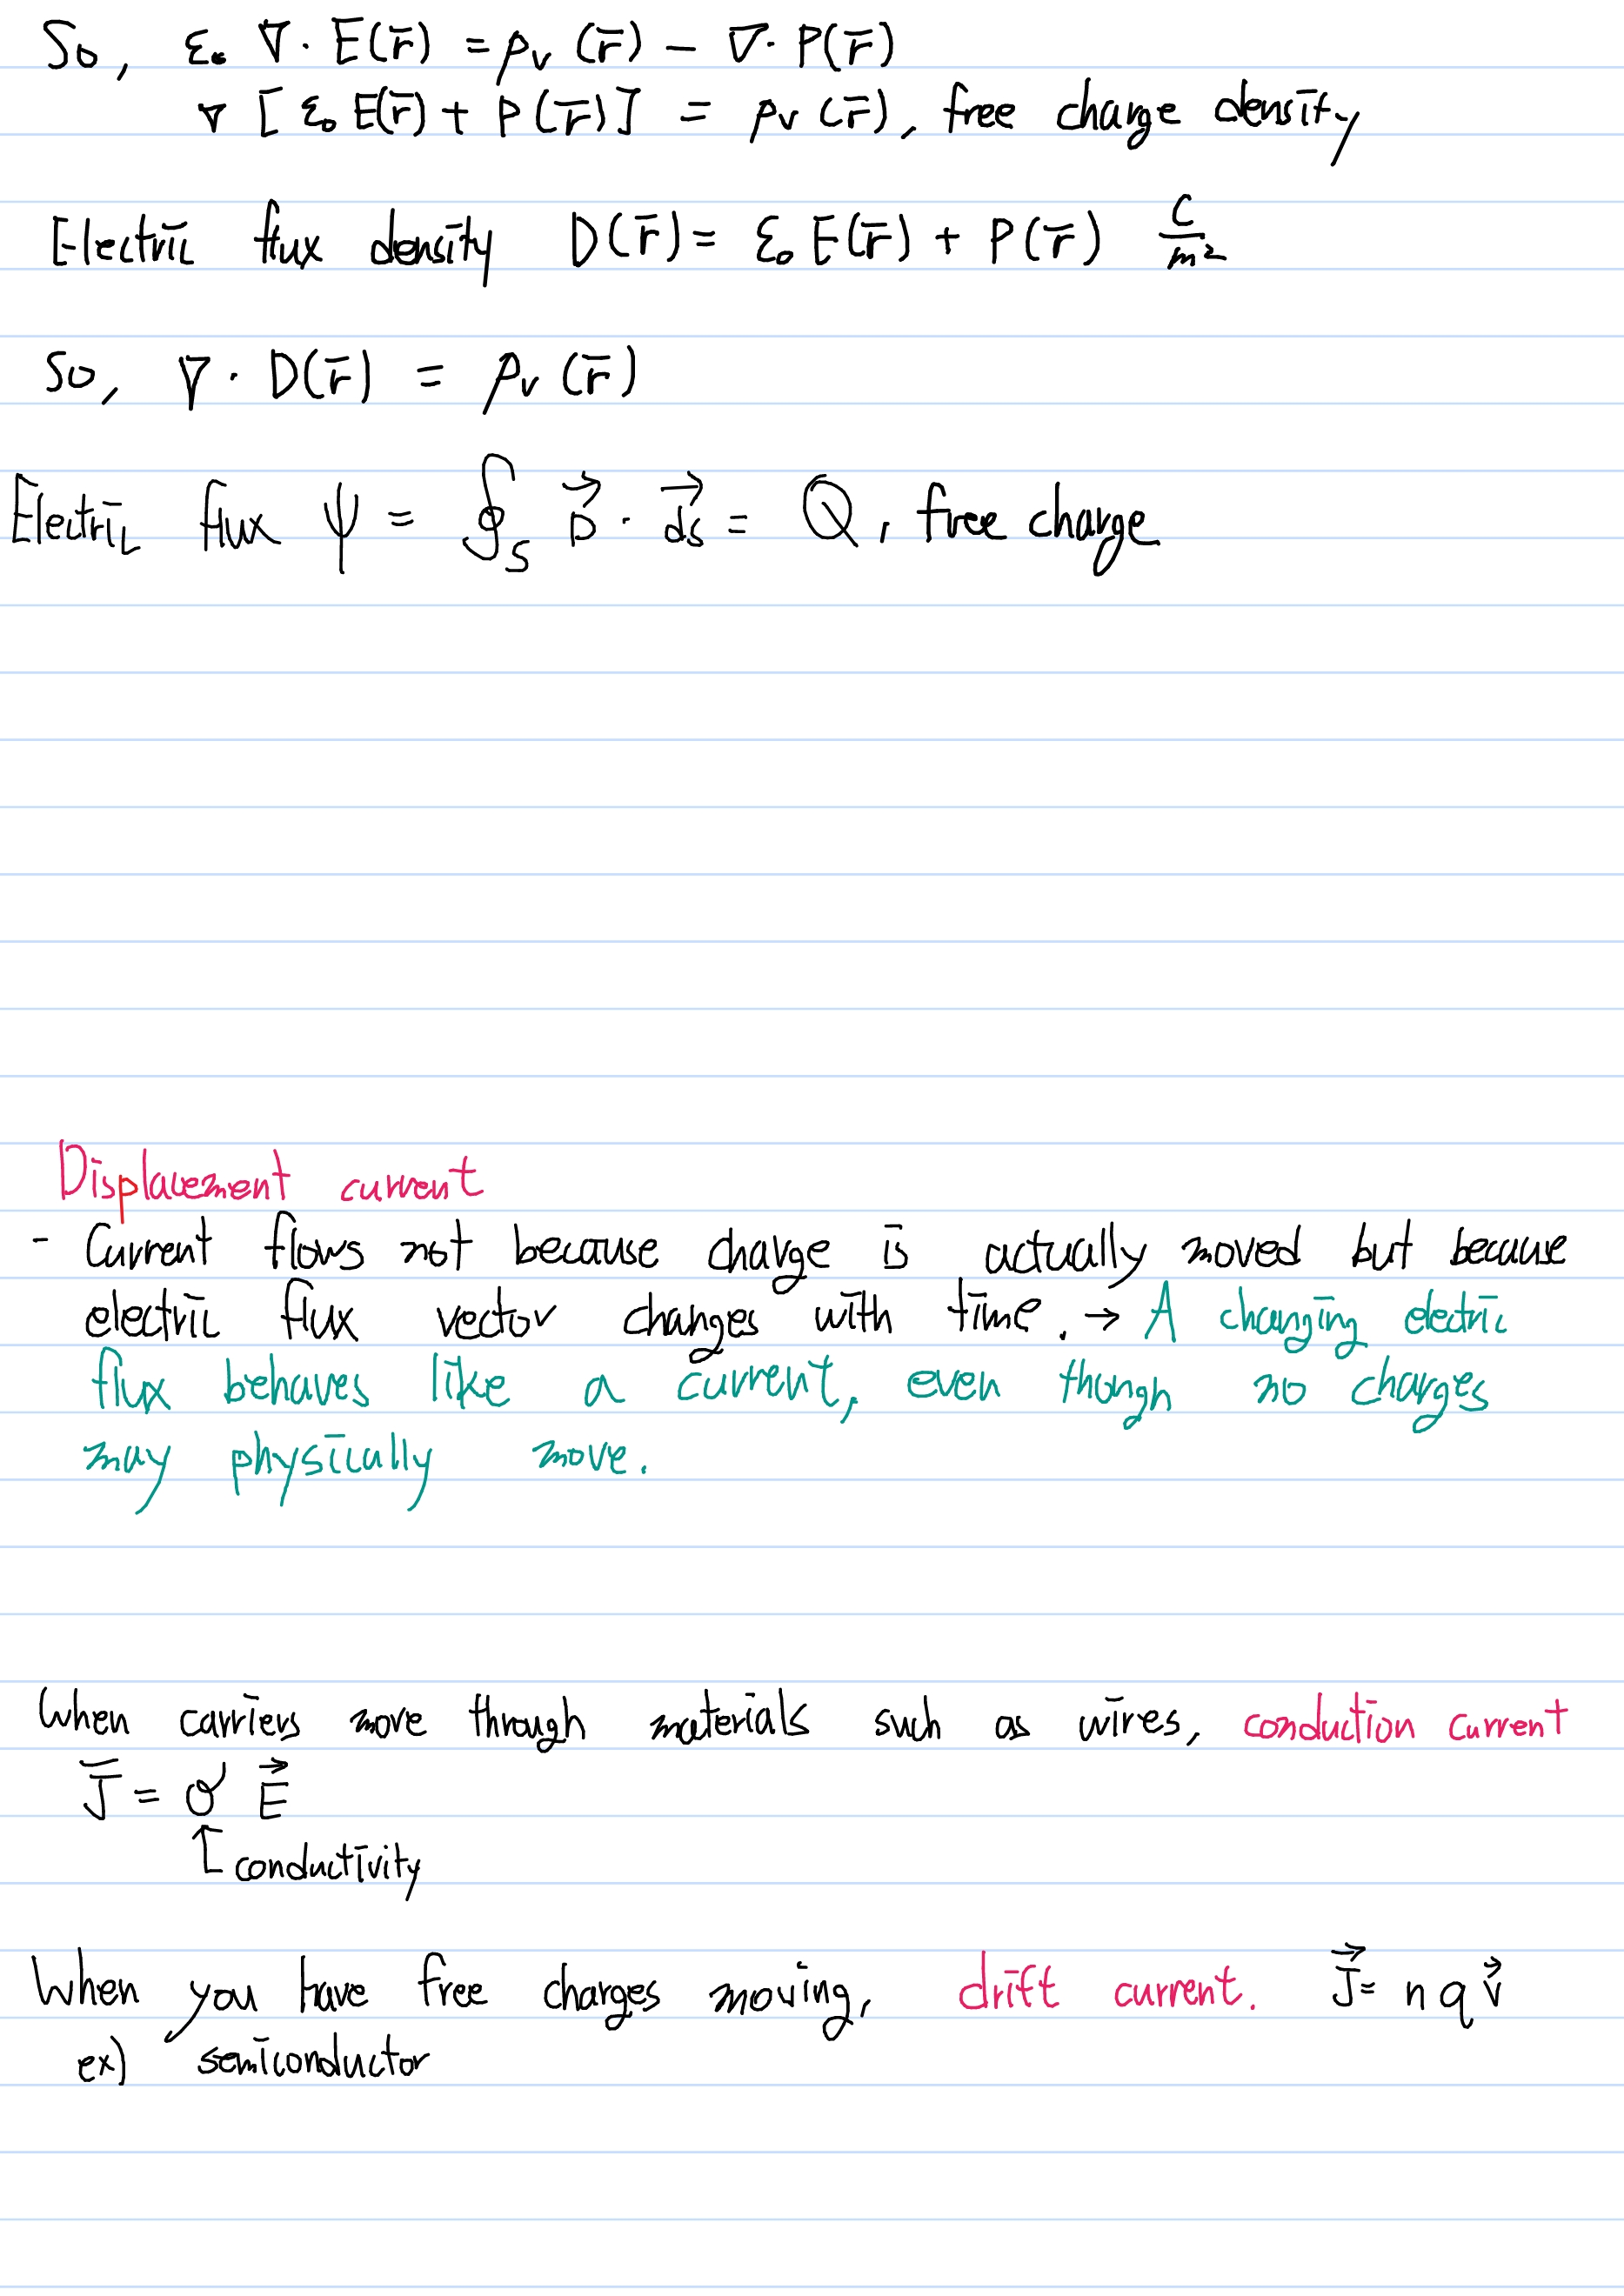 So, ε₀ ∇· E(r̄) = ρᵥ (r̄) − ∇· P(r̄)
∇ [ ε₀ E(r̄) + P(r̄)] = ρᵥ (r̄), free charge density
Electric flux density D(r̄) = ε₀ E(r̄) + P(r̄) C/m²
So, ∇ · D(r̄) = ρᵥ (r̄)
Electric flux ψ = ∮_S D⃗ · d⃗s = Q, free charge
Displacement current
- Current flows not because charge is actually moved but because
electric flux vector changes with time. → A changing electric
flux behaves like a current, even though no charges
may physically move.
When carriers move through materials such as wires, conduction current
J̄ = σ E⃗
↑ conductivity
When you have free charges moving, drift current. J⃗ = n q v⃗
ex) semiconductor